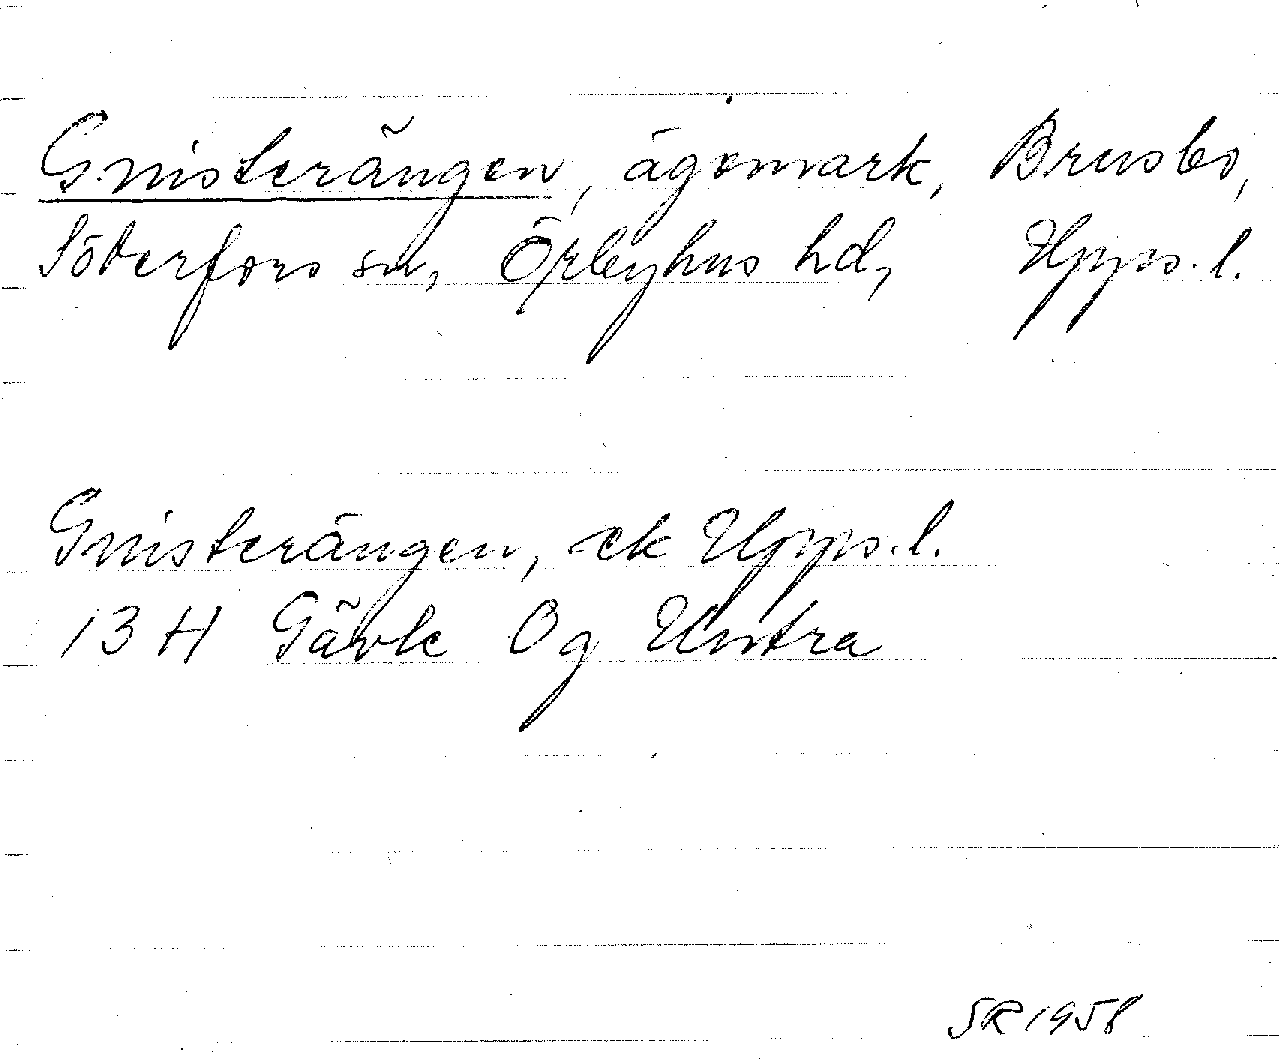 Gnisterängen, ägomark, Brusbo,
Söderfors sn, Örbyhus hd, Upps. l.
Gnisterängen, ek Upps. l.
13 H Gävle Og Untra
SR 1958